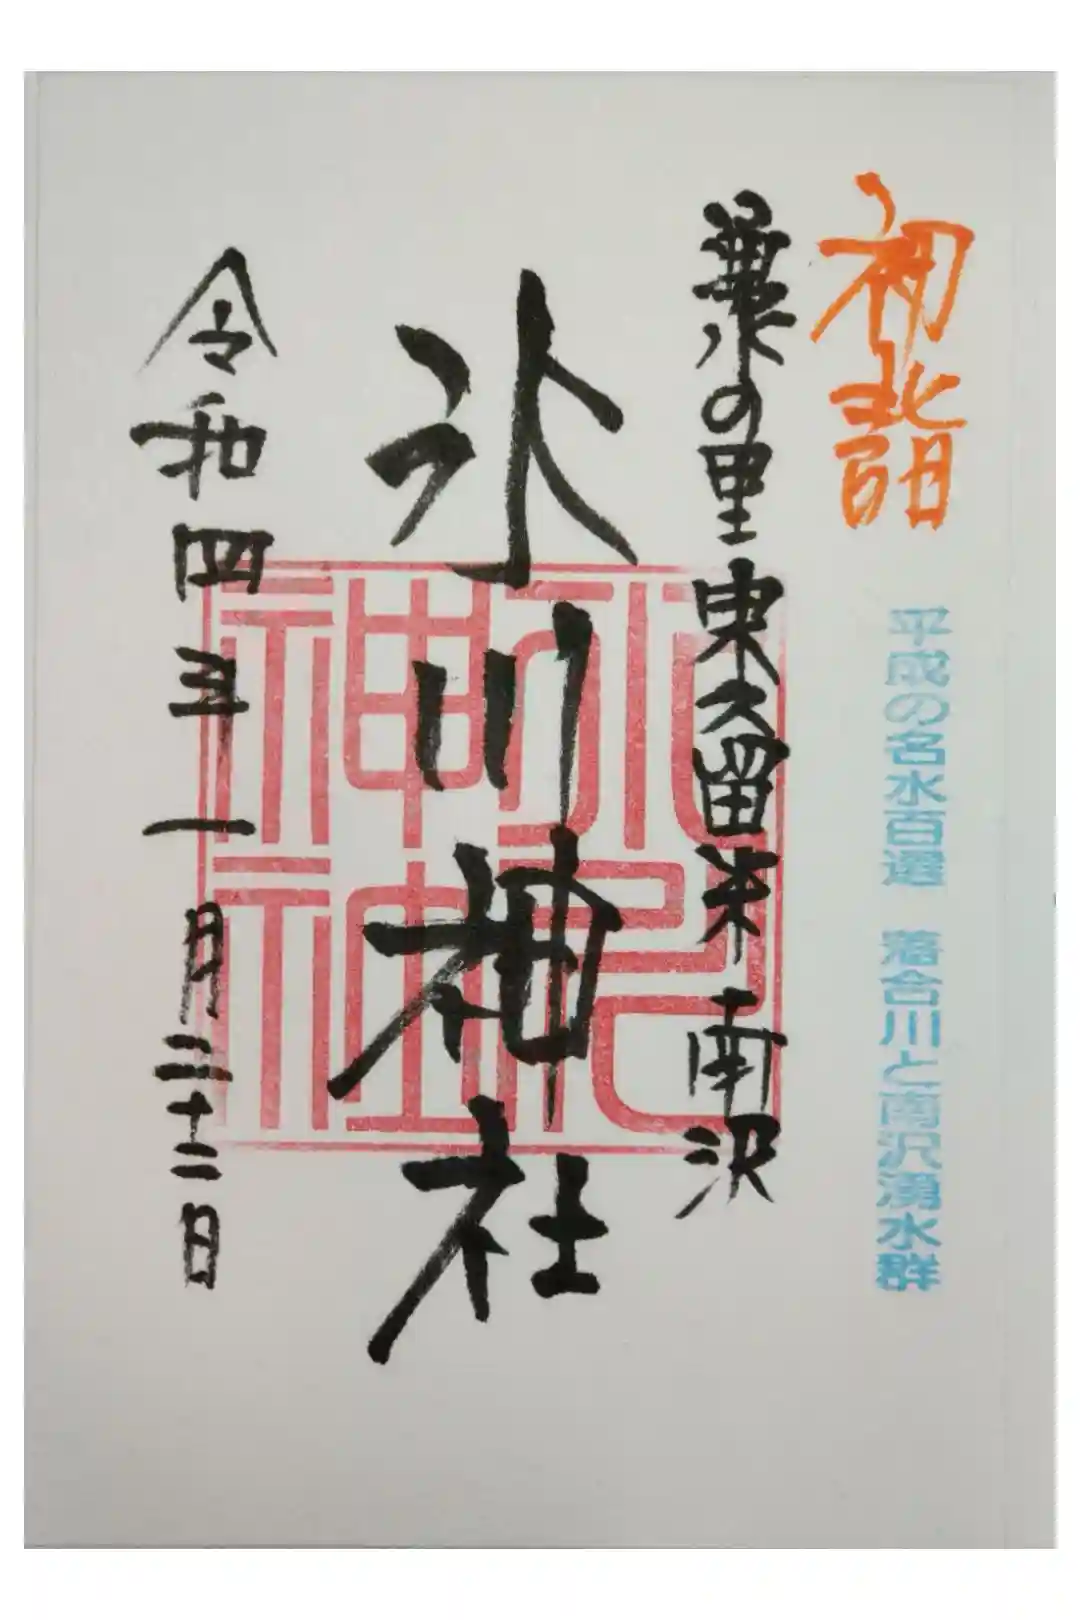 初詣
平成の名水百選 落合川と南沢湧水群
の里 東久留米 南沢
氷川神社
氷川神社
令和四年一月二十二日